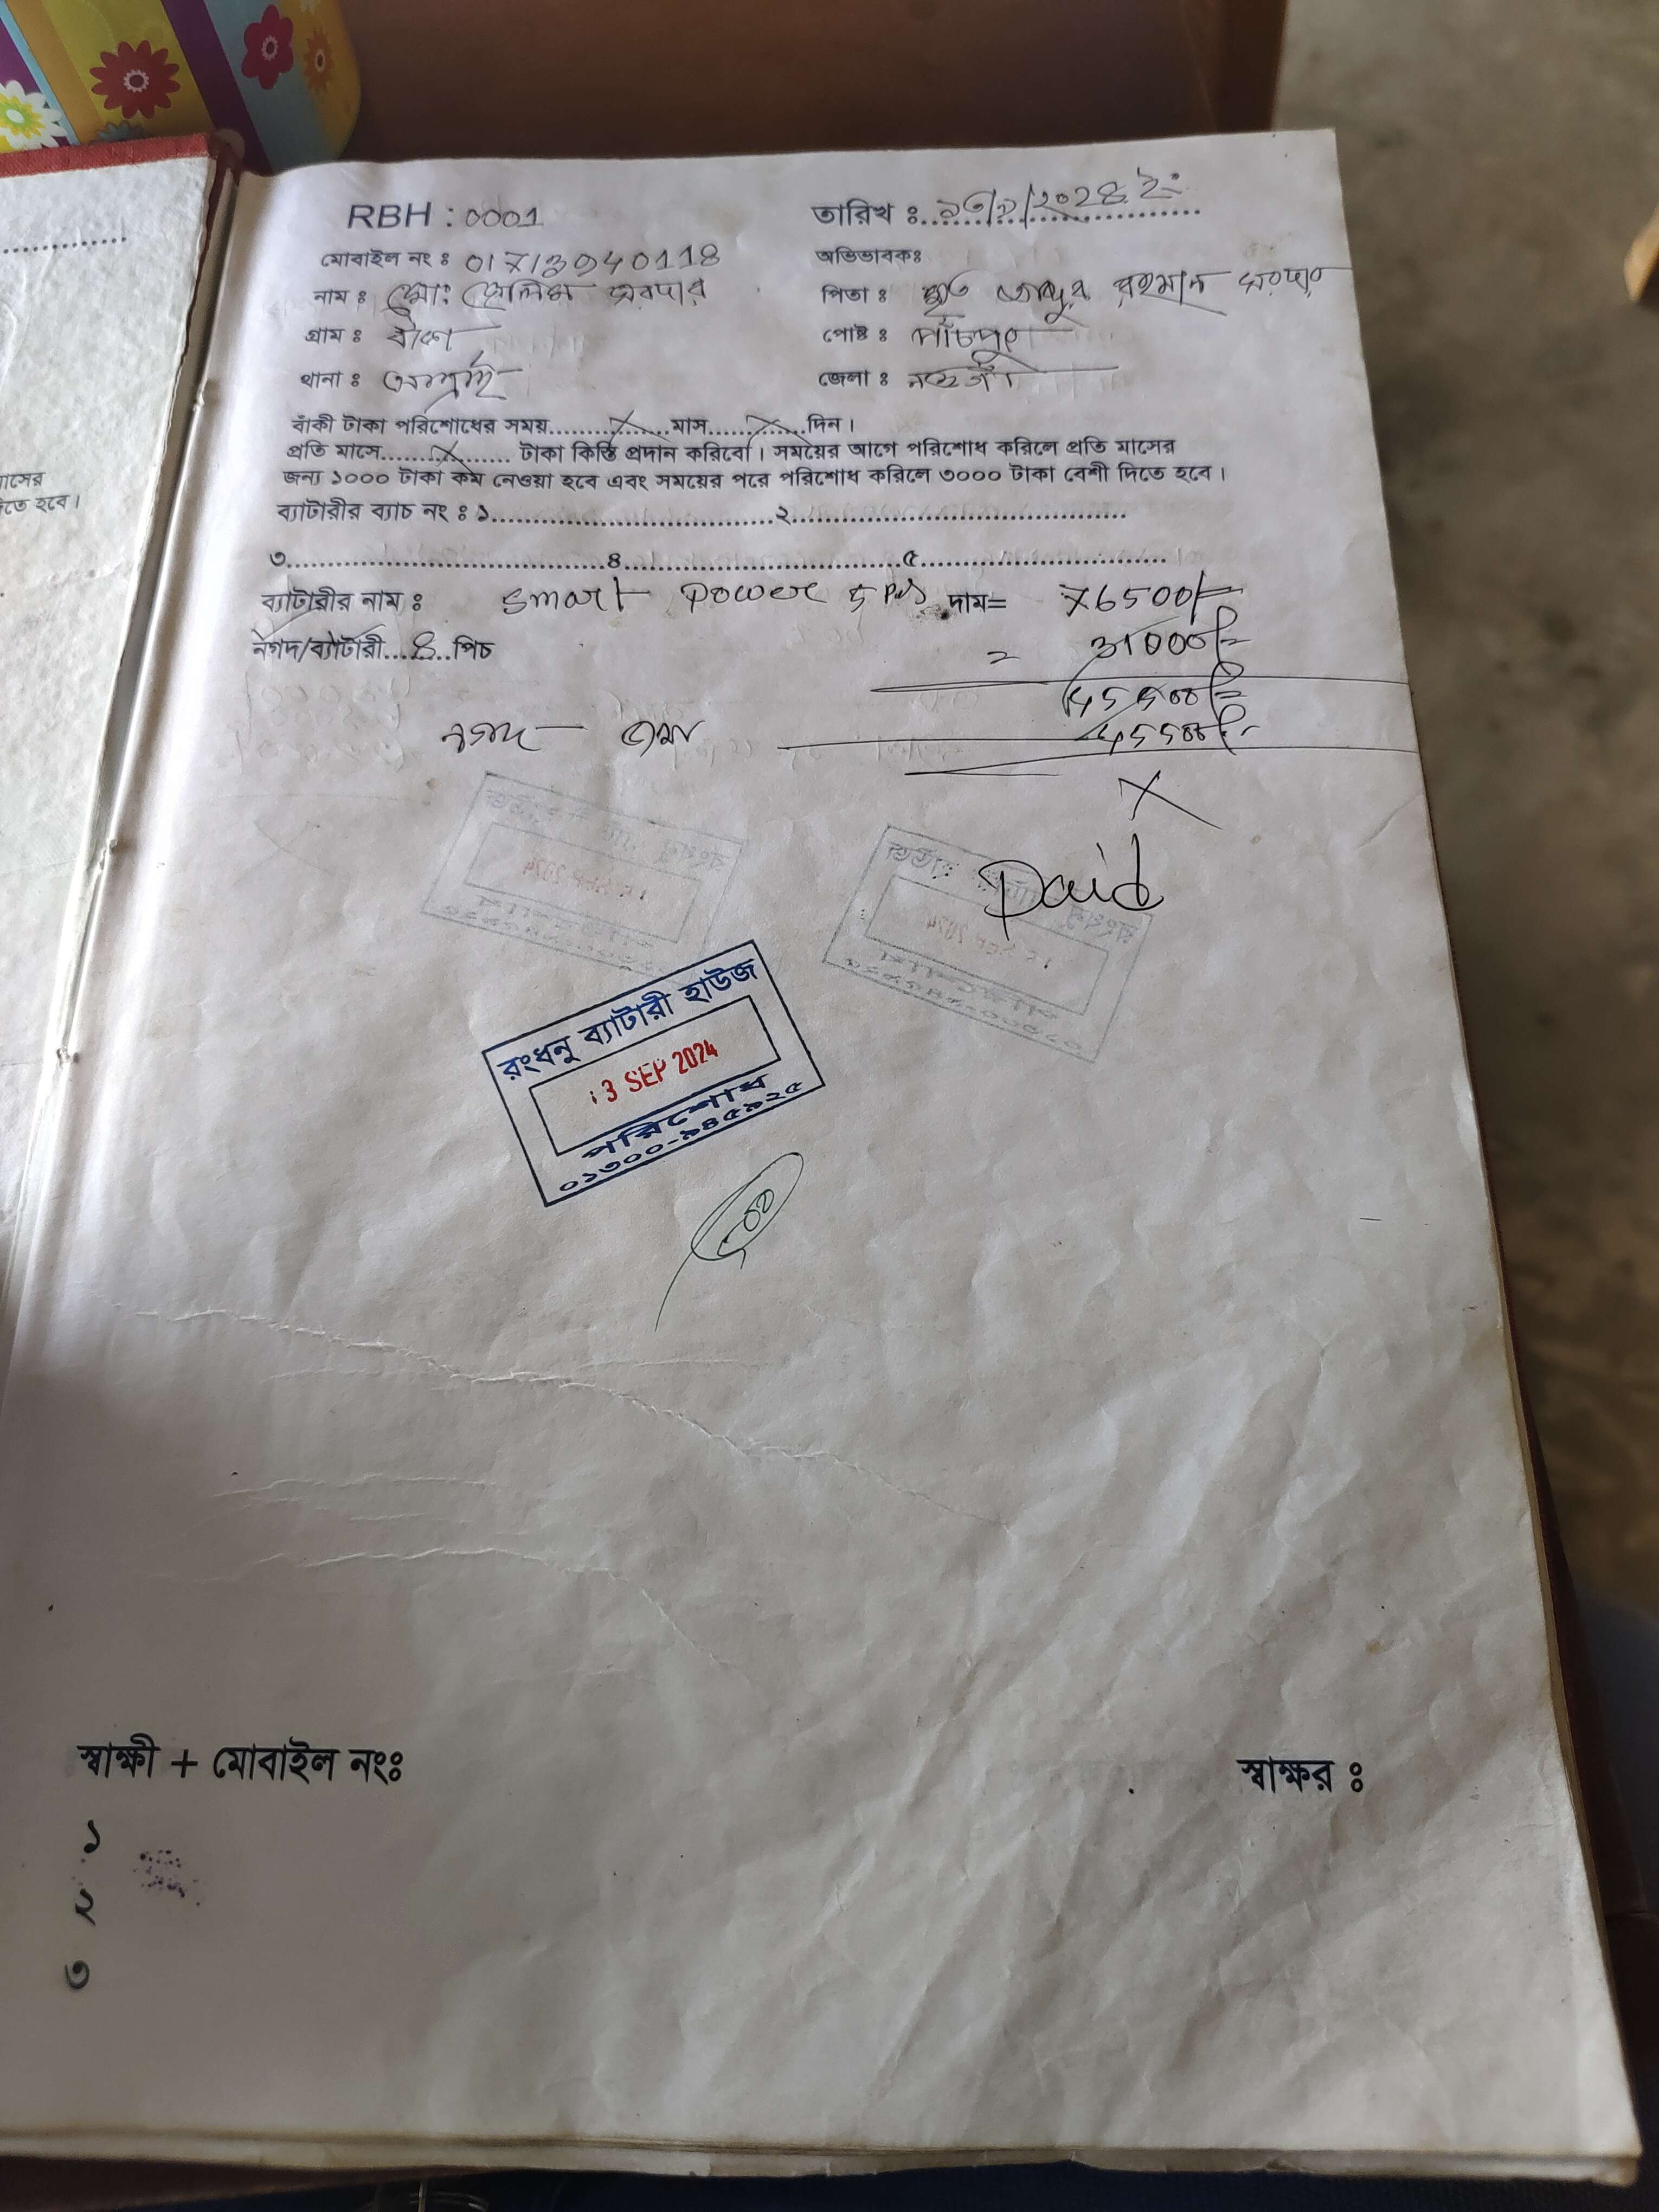 RBH : 0001
তারিখ ঃ ১৩/৯/২০২৪ ইং
মোবাইল নং ঃ 01713940118
অভিভাবকঃ
নাম ঃ মোঃ সেলিম সরদার
পিতা ঃ মৃত রহমান সরদার
গ্রাম ঃ
পোষ্ট ঃ পাঁচপুর
থানা ঃ আত্রাই
জেলা ঃ নওগাঁ
বাঁকী টাকা পরিশোধের সময়..........X......মাস.......X......দিন।
প্রতি মাসে..........X......... টাকা কিস্তি প্রদান করিবো। সময়ের আগে পরিশোধ করিলে প্রতি মাসের
জন্য ১০০০ টাকা কম নেওয়া হবে এবং সময়ের পরে পরিশোধ করিলে ৩০০০ টাকা বেশী দিতে হবে।
ব্যাটারীর ব্যাচ নং ঃ ১........................................২........................................
৩........................................৪........................................৫........................................
ব্যাটারীর নাম ঃ Smart Power 5 Pcs দাম= 76500/=
নগদ/ব্যাটারী....৪..পিচ = 31000/=
45500/=
নগদ জমা 45500/=
X
Paid
রংধনু ব্যাটারী হাউজ
13 SEP 2024
পরিশোধ
০১৩০০-৯৪৫৯২৫
স্বাক্ষী + মোবাইল নংঃ
স্বাক্ষর ঃ
১
২
৩
াসের
দিতে হবে।